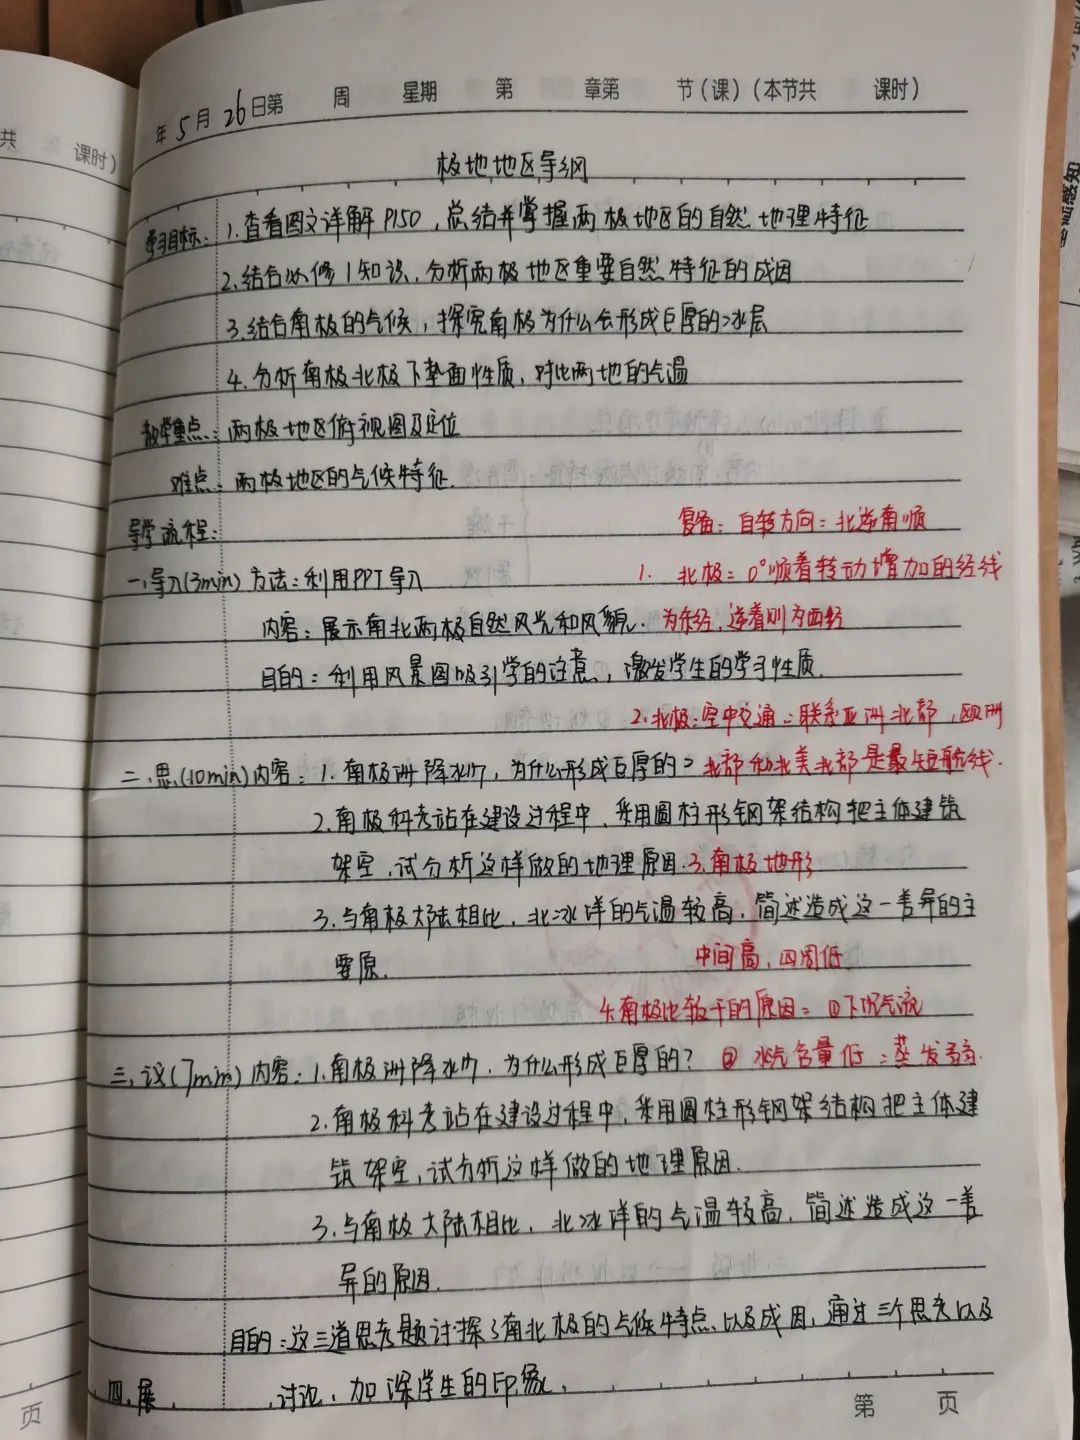 年5月26日第 周 星期 第 章第 节(课)(本节共 课时)
共 课时)
极地地区导纲
学习目标: 1.查看图文详解P150,总结并掌握两极地区的自然地理特征
2.结合必修1知识,分析两极地区重要自然特征的成因
3.结合南极的气候,探究南极为什么会形成巨厚的冰层
4.分析南极北极下垫面性质,对比两地的气温
教学重点:两极地区俯视图及定位
难点:两极地区的气候特征.
导学流程:
复备:自转方向:北逆南顺
一.导入(3min) 方法:利用PPT导入
1. 北极:0°顺着转动增加的经线
内容:展示南北两极自然风光和风貌.
为东经,逆着则为西经
目的:利用风景图吸引学的注意,激发学生的学习性质.
2.北极:空中交通:联系亚洲北部,欧洲
二.思(10min)内容:1.南极洲降水少,为什么形成巨厚的?
北部和北美北部是最短航线.
2.南极科考站在建设过程中,采用圆柱形钢架结构把主体建筑
架空,试分析这样做的地理原因.
3.南极地形
3.与南极大陆相比,北冰洋的气温较高,简述造成这一差异的主
要原.
中间高,四周低
4.南极比较干的原因:①下沉气流
三.议(7min) 内容:1.南极洲降水少,为什么形成巨厚的?
② 水汽含量低:蒸发弱.
2.南极科考站在建设过程中,采用圆柱形钢架结构把主体建
筑架空,试分析这样做的地理原因.
3.与南极大陆相比,北冰洋的气温较高,简述造成这一差
异的原因.
目的:这三道思考题讨探了南北极的气候特点以及成因,通过三个思考以及
讨论,加深学生的印象,
四.展
第 页
页